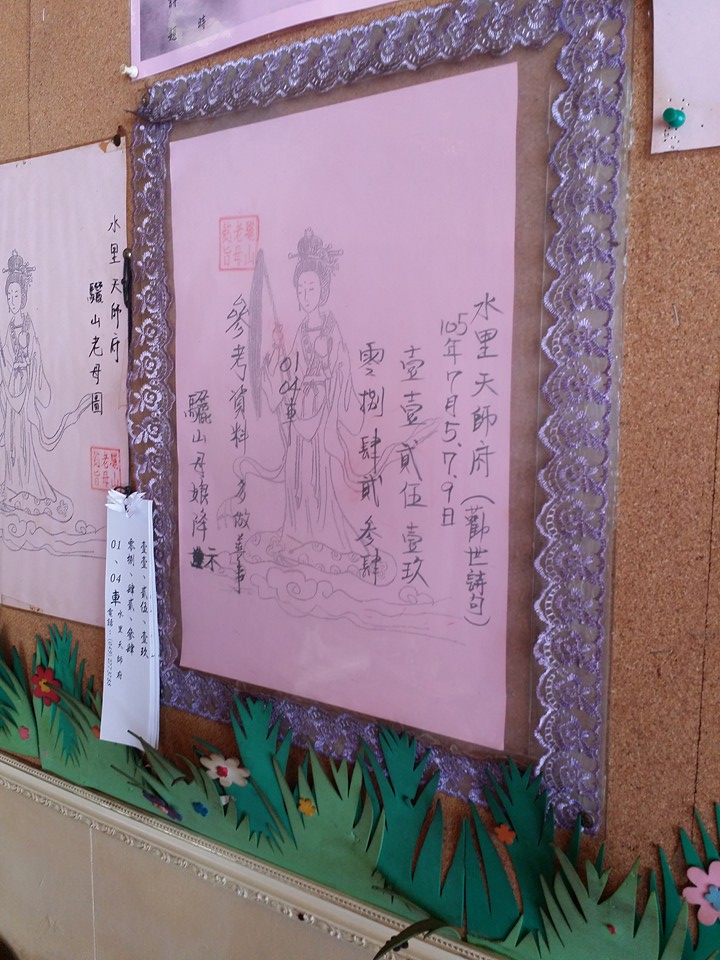 水里天師府（勸世詩句）
105年7月5.7.9日
壹壹貳伍壹玖
零捌肆貳參肆
01 04車
參考資料 多做善事
驪山母娘降示
驪山老母
水里天師府
驪山老母圖
驪山老母
壹壹、貳伍、壹玖
零捌、肆貳、參肆
01、04車
水里天師府
電話：
詩
時